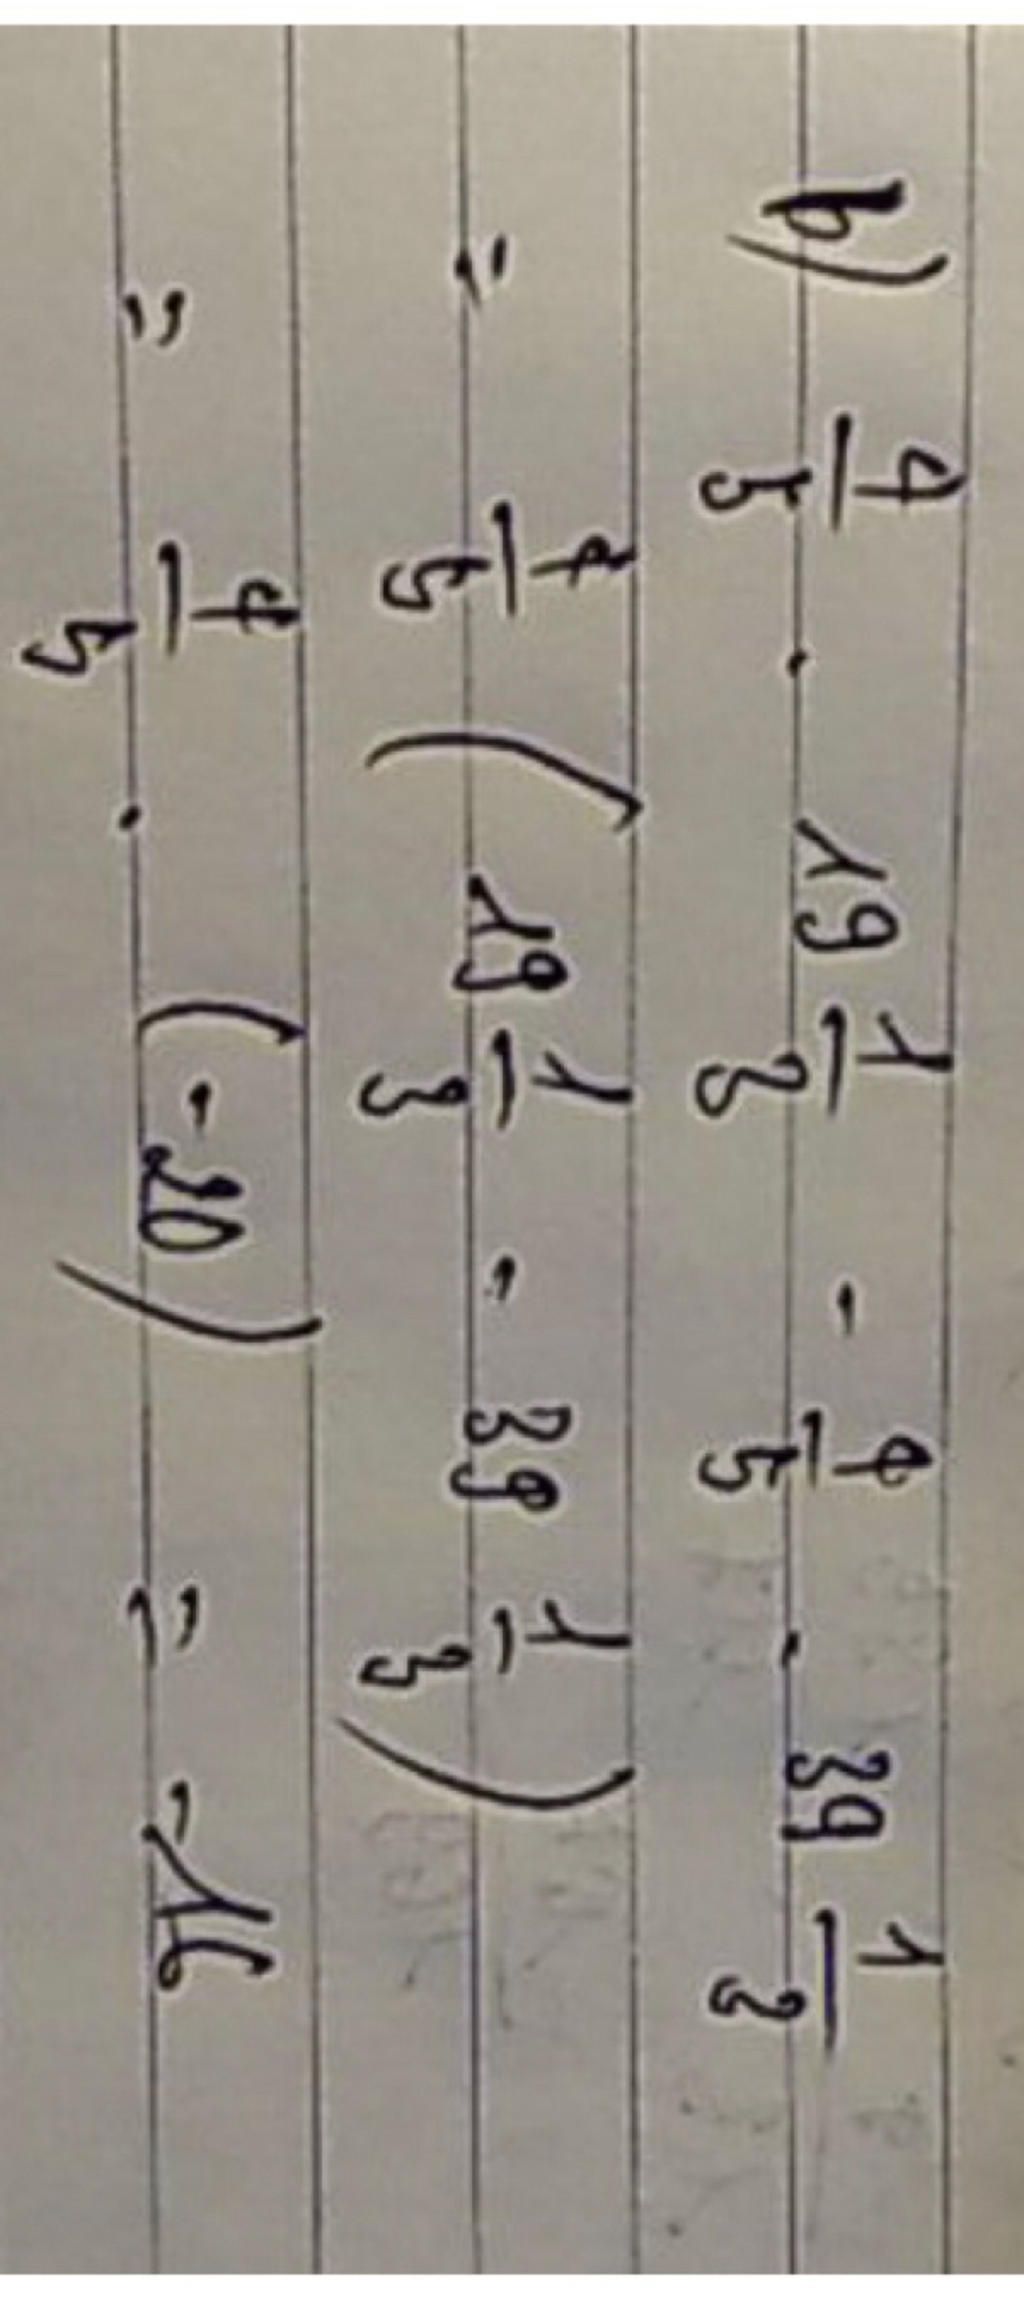 b) 4/5 . 19 1/3 - 4/5 . 39 1/3
= 4/5 (19 1/3 - 39 1/3)
= 4/5 . (-20) = -16